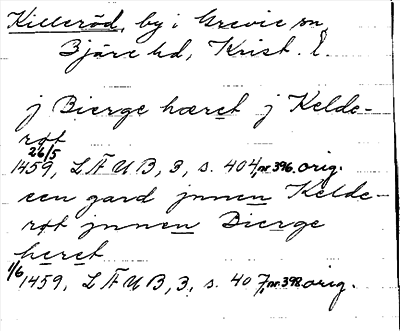 Killeröd, by i Grevie sn
Bjäre hd, Krist. l.
j Bierge hæret j Kelde-
røt
26/5
1459, LÄUB, 3, s. 404, nr 396. orig.
een gard jnnen Kelde-
røt jnnen Bierge
heret
1/6 1459, LÄUB, 3, s. 407, nr 398 orig.